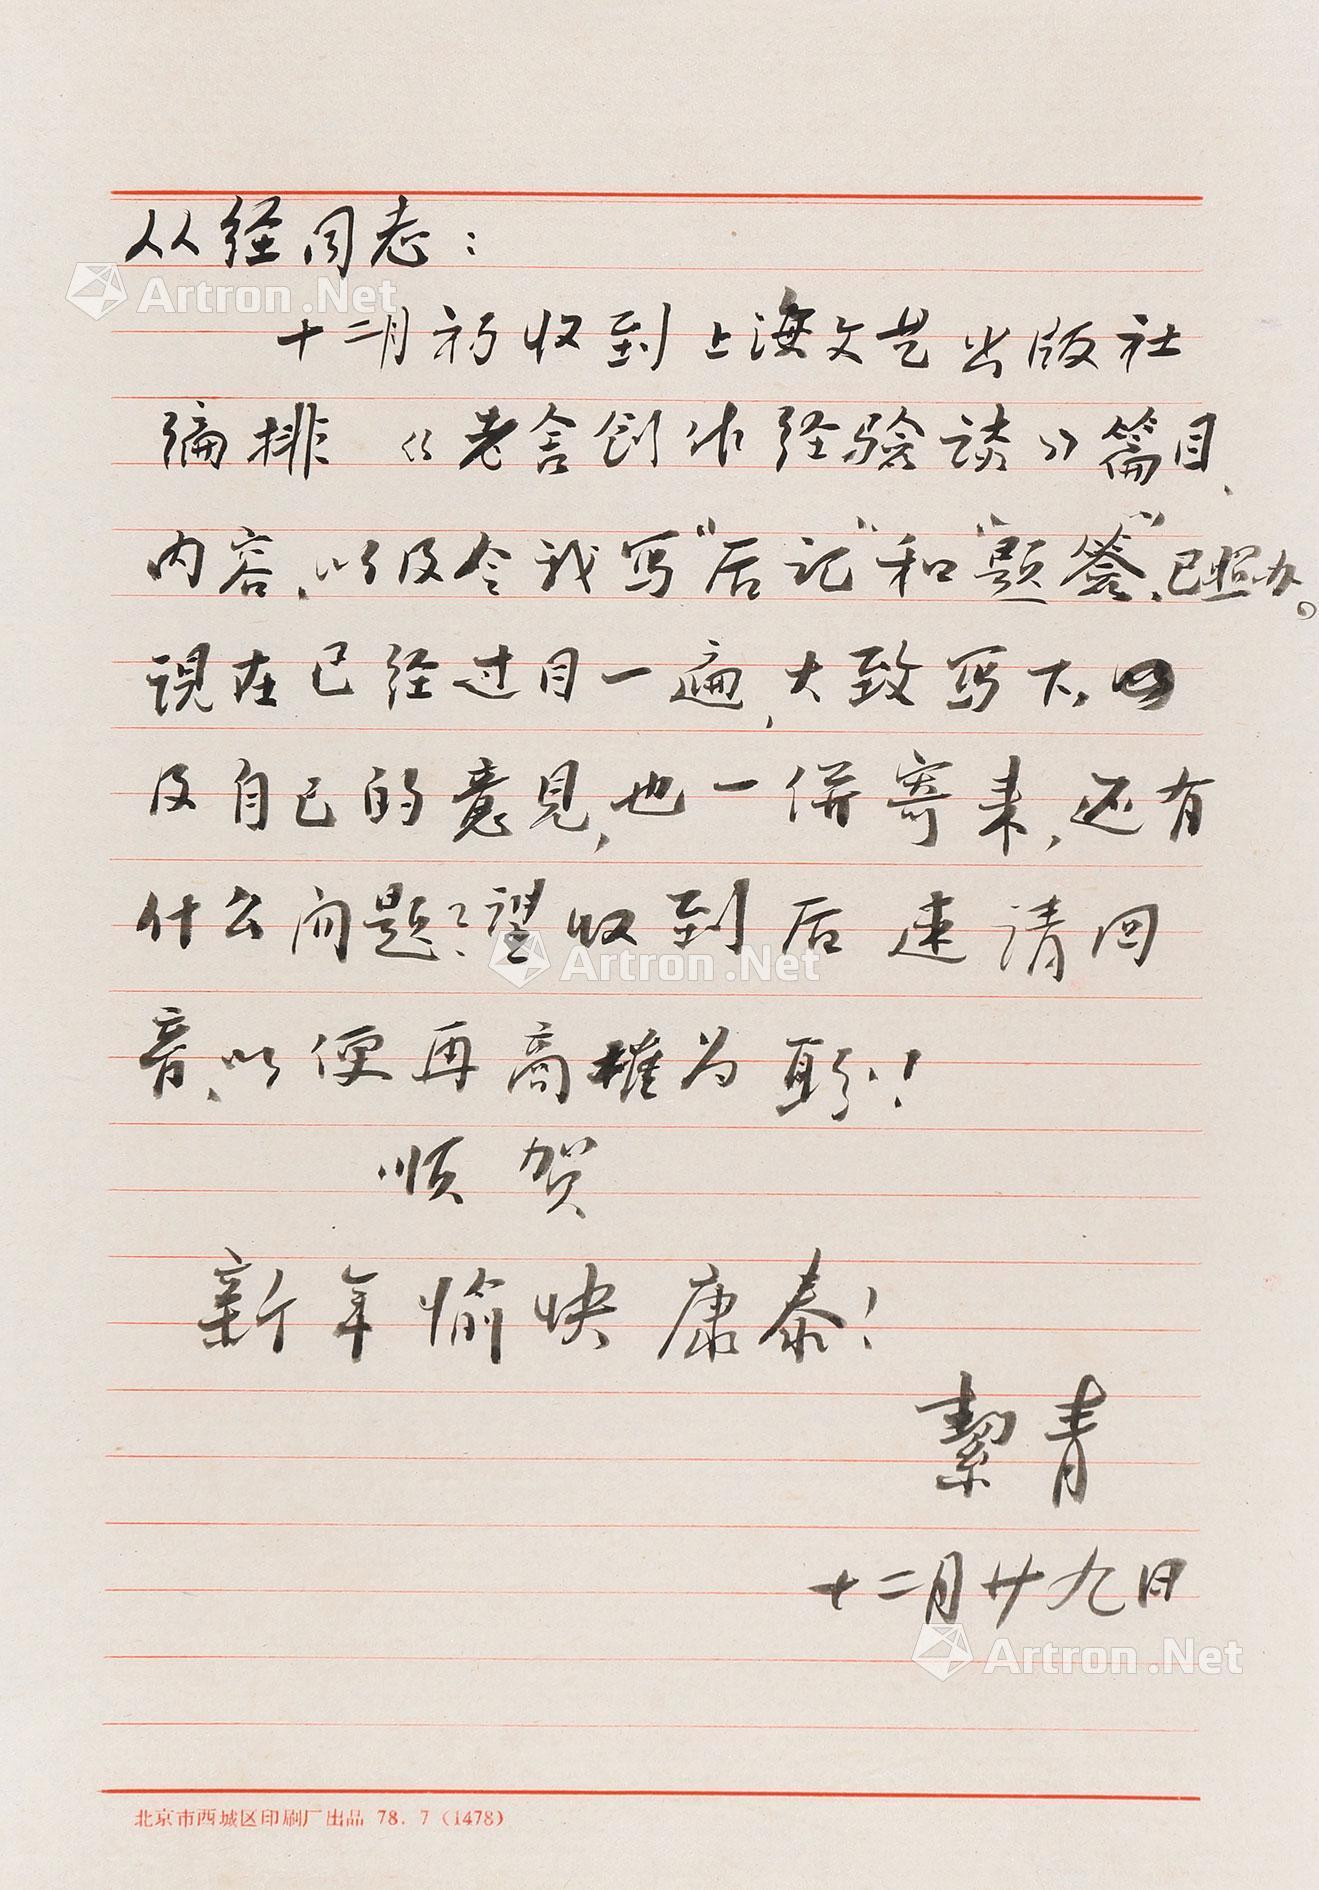 从经同志：
十二月初收到上海文艺出版社
编排《老舍创作经验谈》篇目、
内容、以及令我写“后记”和“题签”，已照办。
现在已经过目一遍，大致写下，以
及自己的意见，也一併寄来，还有
什么问题？望收到后速请回
音，以便再商榷为盼！
顺贺
新年愉快康泰！
絜青
十二月廿九日
北京市西城区印刷厂出品 78.7（1478）
Artron.Net
Artron.Net
Artron.Net